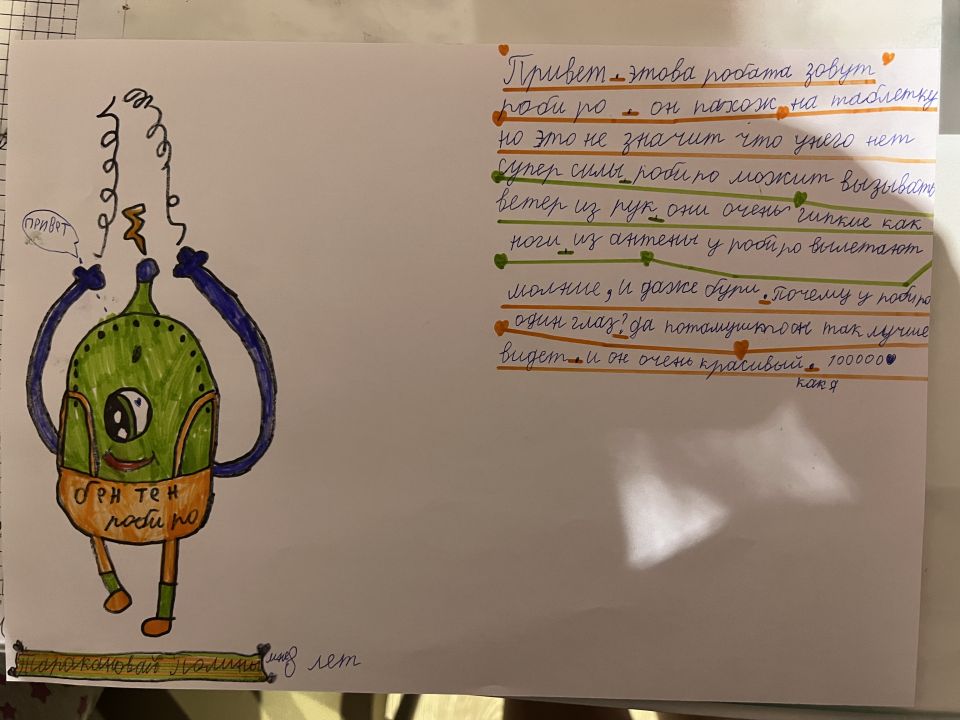 Привет. этова робата зовут
роби ро. он пахож на таблетку
но это не значит что унего нет
супер силы. роби ро можит вызывать
ветер из рук. они очень гипкие как
ноги. из антены у роби ро вылетают
молние, и даже бури. Почему у роби ро
один глаз? да потамушто он так лучше
видет. и он очень красивый. 100000
как я
ПРИВЕТ
бен тен
роби ро
Таракановай Полины мне 8 лет